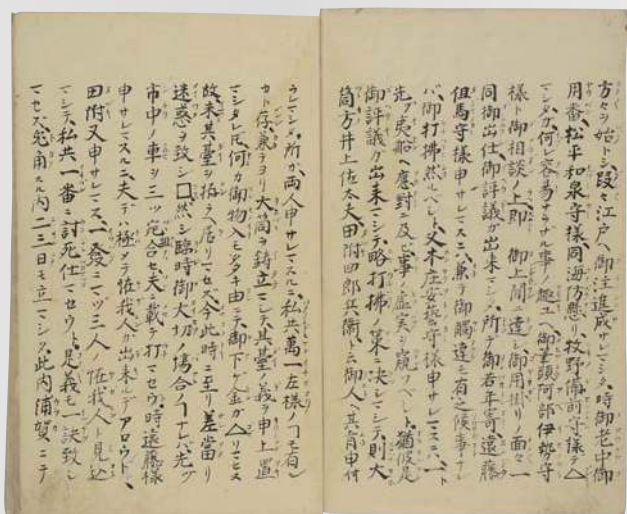 方々ヲ始トシ段々江戸ヘ御注進成サレマシタ時御老中御
用番松平和泉守様同海防懸リ牧野備前守様デ△
マシタガ何ガ容易ナラザル事ノ趣ユヘ御筆頭阿部伊勢守
様ト御相談ノ上即 御上聞ニ達シ御用掛リノ面々一
同御出仕御評議ガ出来マシタ所デ御若年寄遠藤
但馬守様申サレマスニハ兼テ御觸達モ有之候事ナレ
バ御打拂然ルベシト又本庄安芸守様申サレマスニハ一ト
先ヅ夷船ヘ應對ニ及ビ事ノ虚実ヲ窺ツベシト猶彼是
御評議ガ出来マシテ略打拂ノ策ニ決シマシテ則大
筒方井上佐太夫田附四郎兵衛ト云御人ヘ其旨申付
ラレマシタ所ガ両人申サレマスルニ私共萬一左様ノ丁モ有ン
カト存兼テヨリ大筒ヲ鋳立マシテ其臺ノ義ヲ申上置
マシタレ𪜈何カ御物入モ多キ由ニテ御下ゲ金ガ△リマセヌ
故未其臺ヲ拵テハ居リマセヌ今此時ニ至リ差當リ
迷惑ヲ致シ□然シ臨時御大切ノ場合ノ丁ナレバ先ヅ
市中ノ車ヲ三ツ宛合セ夫ニ載テ打マセウ時遠藤様
申サレマスルニ夫デハ極メテ怪我人ガ出来ルデアロウト
田附又申サレマス一發ニマヅ三人ノ怪我人ト見込
マシテ私共一番ニ討死仕マセウト是義モ一決致シ
マセズ兎角スル内二三日モ立マシタ此内浦賀ニテ